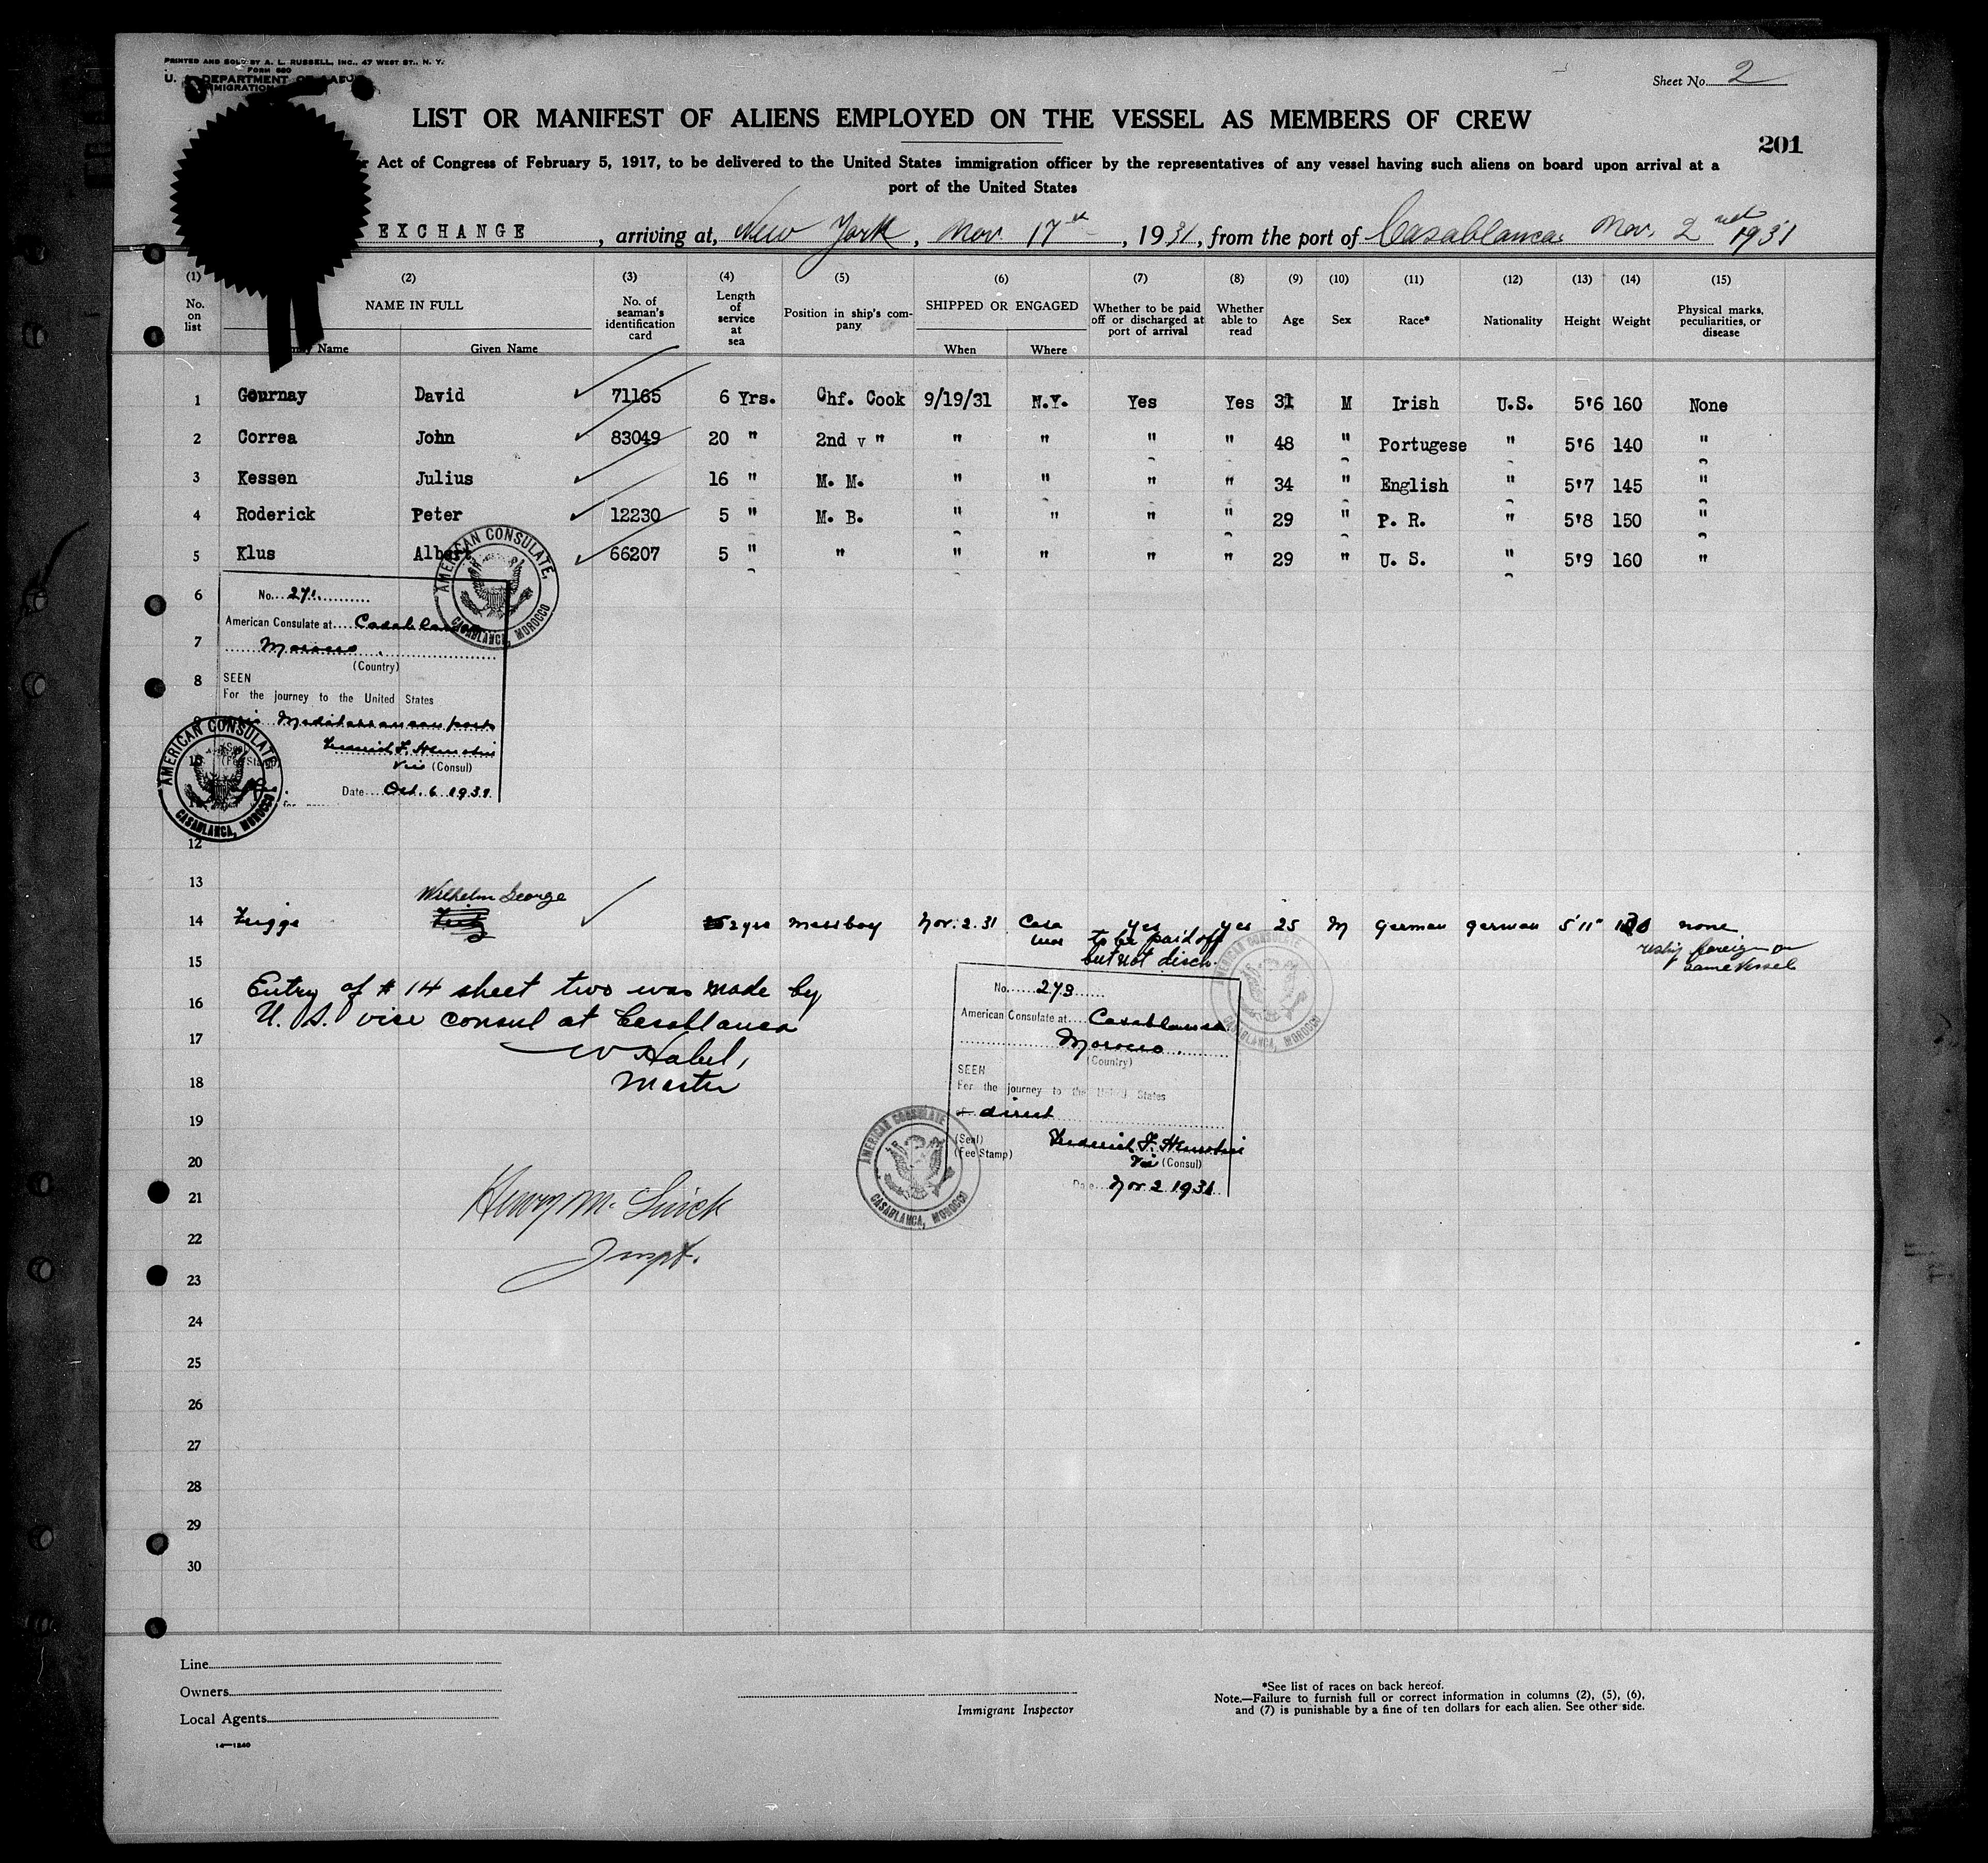 PRINTED AND SOLD BY A. L. RUSSELL, INC., 47 WEST ST., N. Y.
FORM 680
U. DEPARTMENT OF LABOR
IMMIGRATION
Sheet No. 2
LIST OR MANIFEST OF ALIENS EMPLOYED ON THE VESSEL AS MEMBERS OF CREW
201
Act of Congress of February 5, 1917, to be delivered to the United States immigration officer by the representatives of any vessel having such aliens on board upon arrival at a
port of the United States
EXCHANGE, arriving at, New York, Nov. 17th, 1931, from the port of Casablanca Nov. 2nd 1931
(1) (2) (3) (4) (5) (6) (7) (8) (9) (10) (11) (12) (13) (14) (15)
No. on list
NAME IN FULL
Name Given Name
No. of seaman's identification card
Length of service at sea
Position in ship's company
SHIPPED OR ENGAGED
When Where
Whether to be paid off or discharged at port of arrival
Whether able to read
Age
Sex
Race*
Nationality
Height
Weight
Physical marks, peculiarities, or disease
1 Gournay David 71165 6 Yrs. Chf. Cook 9/19/31 N.Y. Yes Yes 31 M Irish U.S. 5'6 160 None
2 Correa John 83049 20 " 2nd v " " " " " 48 " Portugese " 5'6 140 "
3 Kessen Julius 16 " M. M. " " " " 34 " English " 5'7 145 "
4 Roderick Peter 12230 5 " M. B. " " " " 29 " P. R. " 5'8 150 "
5 Klus Albert 66207 5 " " " " " " 29 " U. S. " 5'9 160 "
AMERICAN CONSULATE, CASABLANCA, MOROCCO
6
No. 271
American Consulate at Casablanca
7
Morocco
(Country)
8
SEEN
For the journey to the United States
9
via Mediterranean ports
Vice (Consul)
Date Oct. 6 1931
AMERICAN CONSULATE CASABLANCA, MOROCCO
12
13
Wilhelm George
14 2 yrs messboy Nov. 2. 31 Casa yes yes 25 M German German 5'11" none
to be paid off
but not disch.
foreign on
same vessel
15
Entry of # 14 sheet two was made by
16
U. S. vice consul at Casablanca
17
Master
18
AMERICAN CONSULATE CASABLANCA, MOROCCO
No. 273
American Consulate at Casablanca
Morocco
(Country)
SEEN
For the journey to the United States
direct
19
(Seal)
(Fee Stamp)
Vice (Consul)
Date Nov 2 1931
AMERICAN CONSULATE CASABLANCA, MOROCCO
20
21
Henry M.
22
Inspt.
23
24
25
26
27
28
29
30
Line
Owners
Local Agents
14—1240
Immigrant Inspector
*See list of races on back hereof.
Note.—Failure to furnish full or correct information in columns (2), (5), (6),
and (7) is punishable by a fine of ten dollars for each alien. See other side.